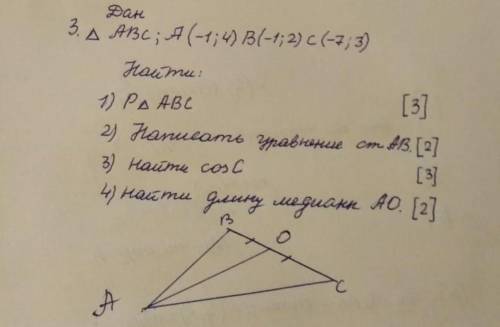 Дан
3. △ ABC; A(-1;4) B(-1;2) C(-7;3)
Найти:
1) P△ ABC [3]
2) Написать уравнение ст AB. [2]
3) Найти cosC [3]
4) Найти длину медианы AO. [2]
B
O
C
A